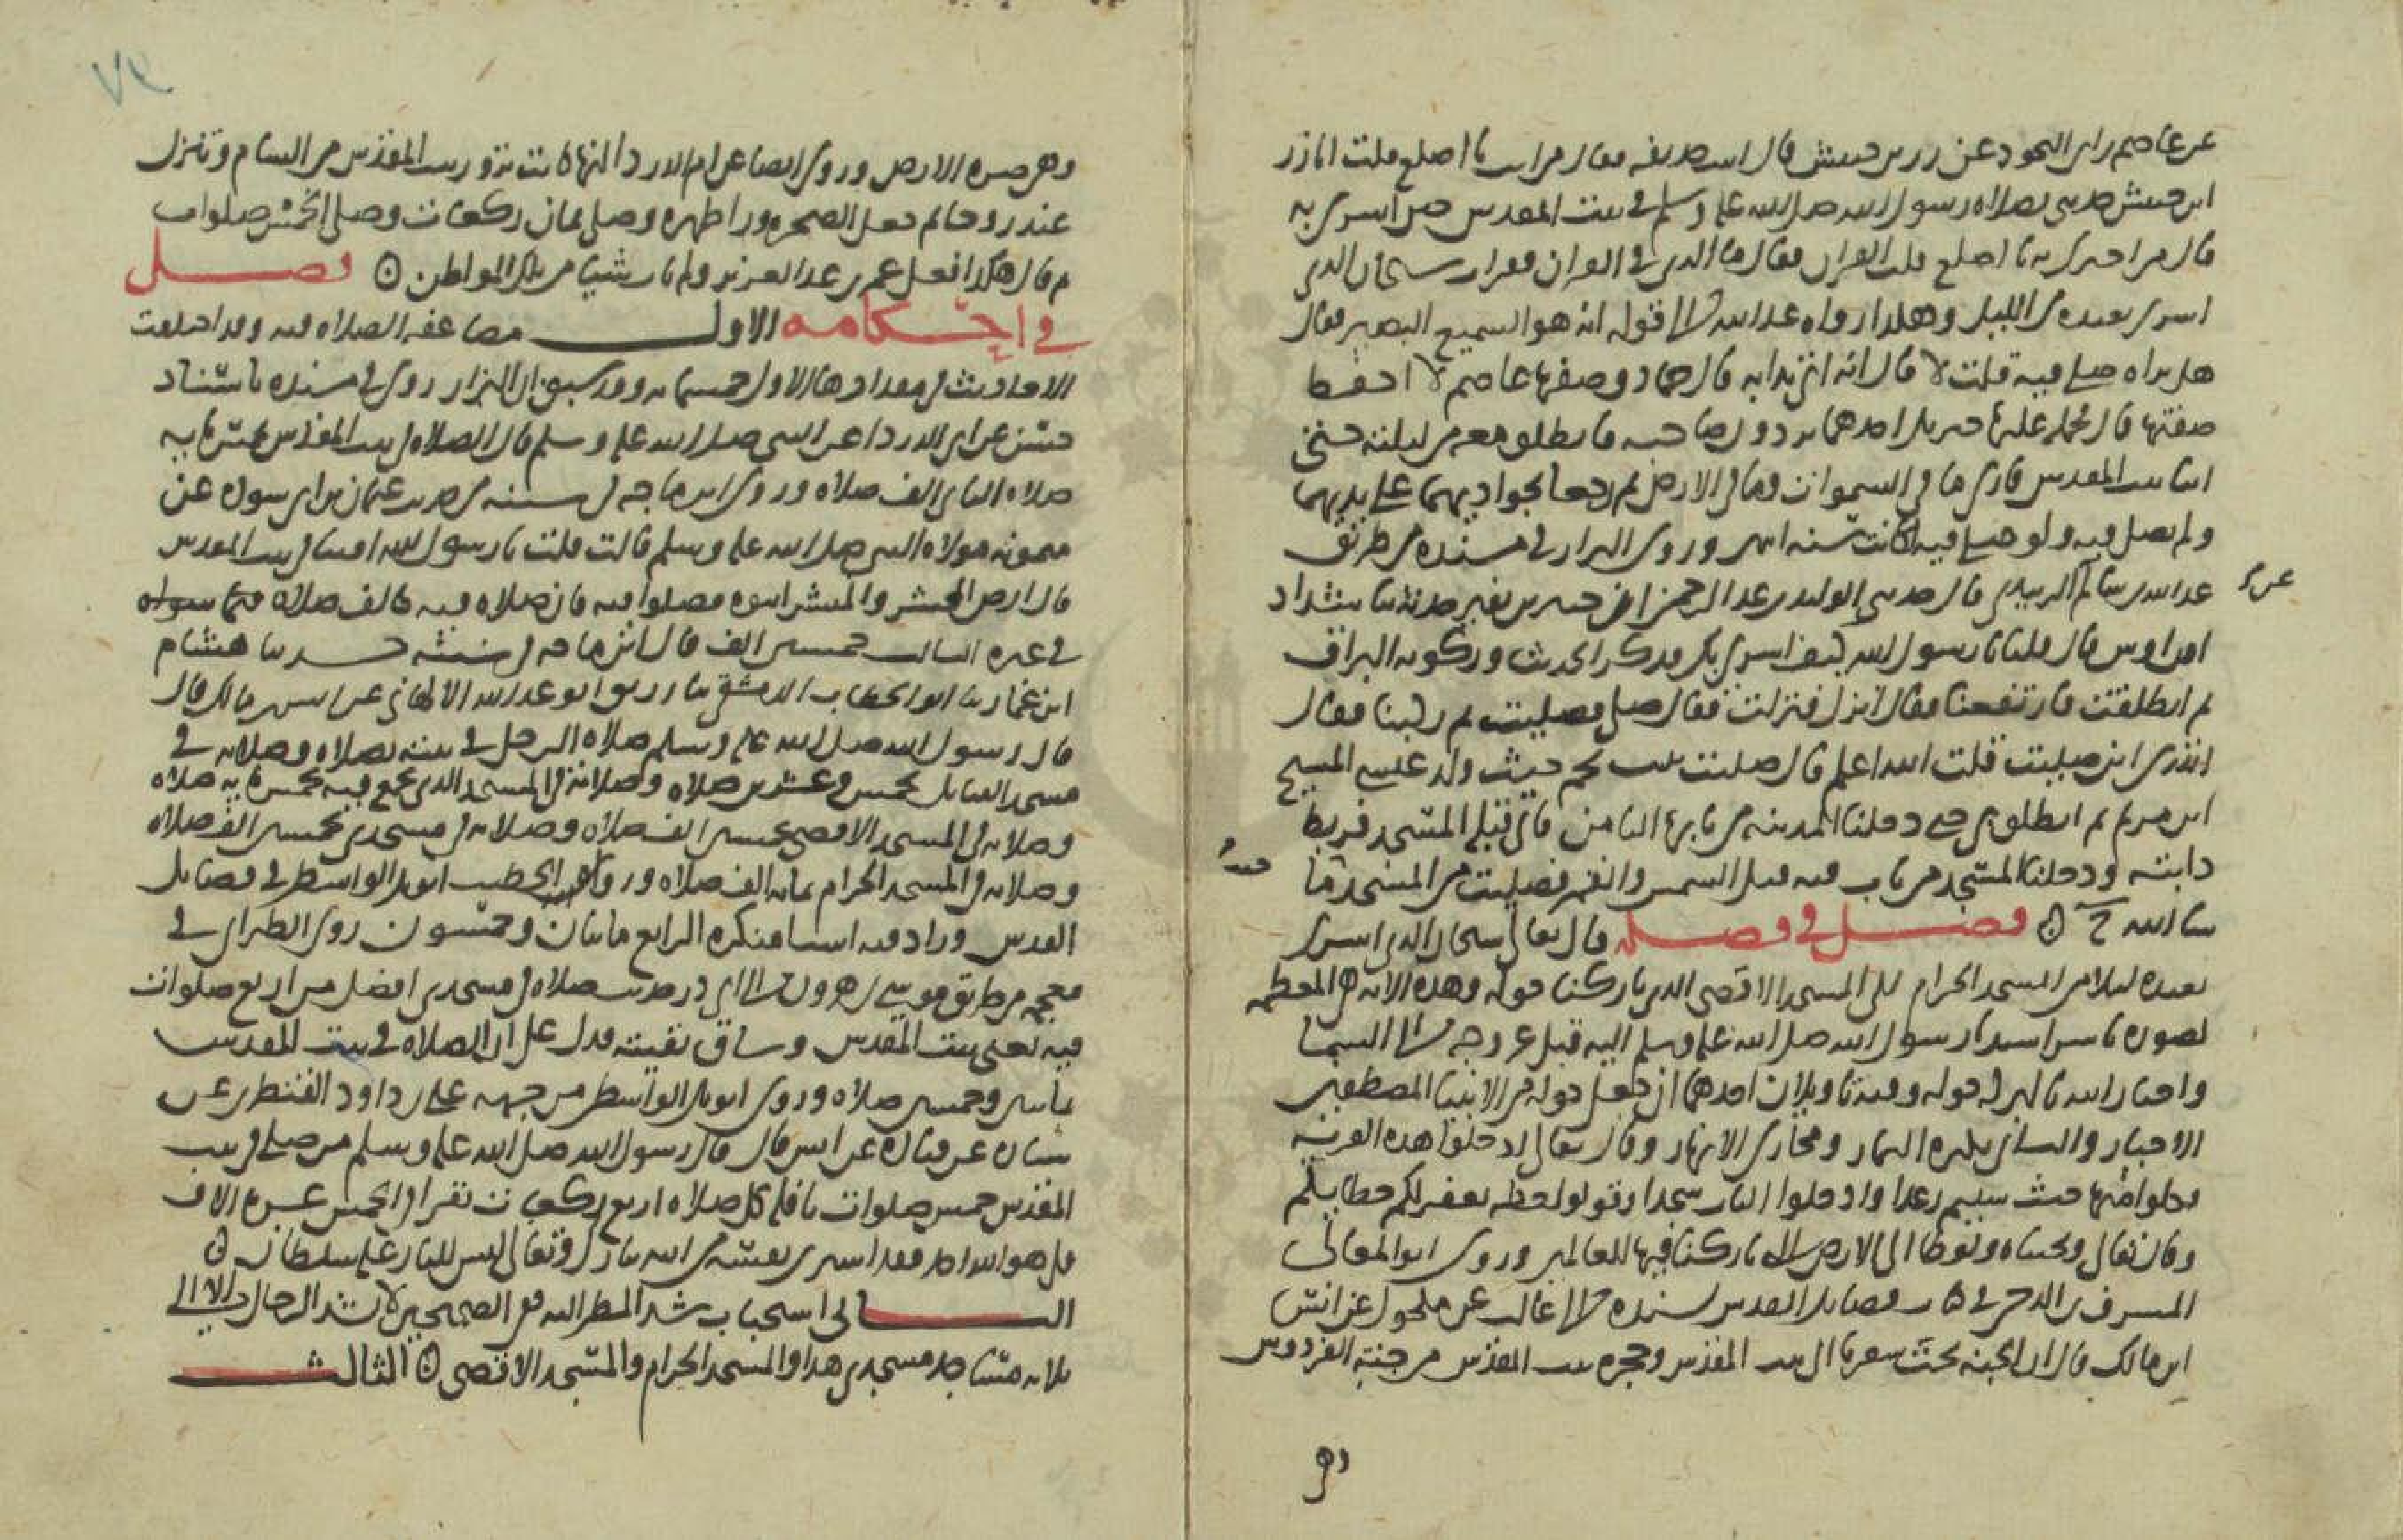 عن عاصم بن ابي النجود عن زر بن حبيش قال اتيت حذيفه فقال من انت يا اصلع قلت انا زر
ابن حبيش حدثني بصلاه رسول الله صلى الله عليه وسلم في بيت المقدس حين اسري به
قال من اخبرك به يا اصلع قلت القران فقال وما الذي في القران فقرات سبحان الذي
اسرى بعبده من الليل وهكذا رواه عبد الله الى قوله انه هو السميع البصير فقال
هل تراه صلى فيه قلت لا قال انه اتي بدابه قال حماد وصفها عاصم لا احفظ
صفتها قال فحمله عليها جبريل احدهما رديف صاحبه فانطلق معه من ليلته حتى
اتيا بيت المقدس فاري ما في السموات وما في الارض ثم رجعا
ولم يصل فيه ولو صلى فيه لكانت سنه وروى البزار في مسنده من طريق
عبد الله بن سالم الزبيدي قال حدثني الوليد بن عبد الرحمن ان جبير بن نفير حدثنا شداد
ابن اوس قال قلنا يا رسول الله كيف اسري بك فذكر الحديث وركوبه البراق
ثم انطلقت فارتفعنا فقال انزل فنزلت فقال صل فصليت ثم ركبنا فقال
اتدري اين صليت قلت الله اعلم قال صليت ببيت لحم حيث ولد عيسى المسيح
ابن مريم ثم انطلق بي حتى دخلنا المدينه من بابها الثامن فاتى قبله المسجد فربط
دابته ودخلنا المسجد من باب فيه تميل الشمس والقمر فصليت من المسجد حيث
شا الله ح ⊙ فصل في فضله قال تعالى سبحان الذي اسرى
بعبده ليلا من المسجد الحرام الى المسجد الاقصى الذي باركنا حوله وهذه الايه هي المعظمه
رسول الله صلى الله عليه وسلم اليه قبل عروجه الى السما
حوله وفيه تاويلان احدهما ان جعل حوله من الانبيا المصطفين
الاخيار والثاني بكثره الثمار ومجاري الانهار وقال تعالى ادخلوا هذه القريه
فكلوا منها حيث شيتم رغدا وادخلوا الباب سجدا وقولوا حطه نغفر لكم خطاياكم
وقال تعالى ونجيناه ولوطا الى الارض التي باركنا فيها للعالمين وروى ابو المعالي
المشرف بن المرجى في كتاب فضايل القدس بسنده الى غالب عن مكحول عن انس
ابن مالك قال ان الجنه تحن شوقا الى بيت المقدس وصخره بيت المقدس من جنه الفردوس
وهي
وهي صره الارض وروى ايضا عن ام الدردا انها كانت تزور بيت المقدس من الشام وتنزل
ركعات وصلى الخمس صلوات
ثم قال هكذا فعل عمر بن عبد العزيز ولم يات شيا من تلك المواطن ⊙ فصل
في احكامه الاول مضاعفه الصلاه فيه وقد اختلفت
الاحاديث في مقدارها الاول خمسمايه وقد سبق ان البزار روى في مسنده باسناد
حسن عن ابي الدردا عن النبي صلى الله عليه وسلم قال الصلاه في بيت المقدس بخمسمايه
صلاه الثاني الف صلاه وروى ابن ماجه في سننه من حديث عثمان بن ابي سوده عن
ميمونه مولاه النبي صلى الله عليه وسلم قالت قلت يا رسول الله افتنا في بيت المقدس
قال ارض المحشر والمنشر ايتوه فصلوا فيه فان صلاه فيه كالف صلاه فيما سواه
في غيره الثالث خمسين الف قال ابن ماجه في سننه حدثنا هشام
ابن عمار ثنا ابو الخطاب الدمشقي ثنا رزيق ابو عبد الله الالهاني عن انس بن مالك قال
قال رسول الله صلى الله عليه وسلم صلاه الرجل في بيته بصلاه وصلاته في
مسجد القبايل بخمس وعشرين صلاه وصلاته في المسجد الذي يجمع فيه بخمسمايه صلاه
وصلاته في المسجد الاقصى بخمسين الف صلاه وصلاته في مسجدي بخمسين الف صلاه
وصلاته في المسجد الحرام بمايه الف صلاه ورواه الخطيب ابو بكر الواسطي في فضايل
القدس وزاد فيه اشيا منكره الرابع مايتان وخمسون روى الطبراني في
معجمه من طريق موسى بن هرون الى ابي ذر حديث صلاه في مسجدي افضل من اربع صلوات
فيه يعني بيت المقدس وساق بقيته فدل على ان الصلاه في بيت المقدس
بمايتين وخمسين صلاه وروى ابو بكر الواسطي من جهه علي بن داود القنطري عن
شيبان عن قتاده عن انس قال قال رسول الله صلى الله عليه وسلم من صلى في بيت
المقدس خمس صلوات نافله كل صلاه اربع ركعات يقرا في الخمس عشره الاف
قل هو الله احد فقد اشترى نفسه من الله تبارك وتعالى ليس للنار عليه سلطان ⊙
الثاني استحباب شد المطي اليه ففي الصحيحين لا تشد الرحال الا الى
ثلاثه مساجد مسجدي هذا والمسجد الحرام والمسجد الاقصى ⊙ الثالث